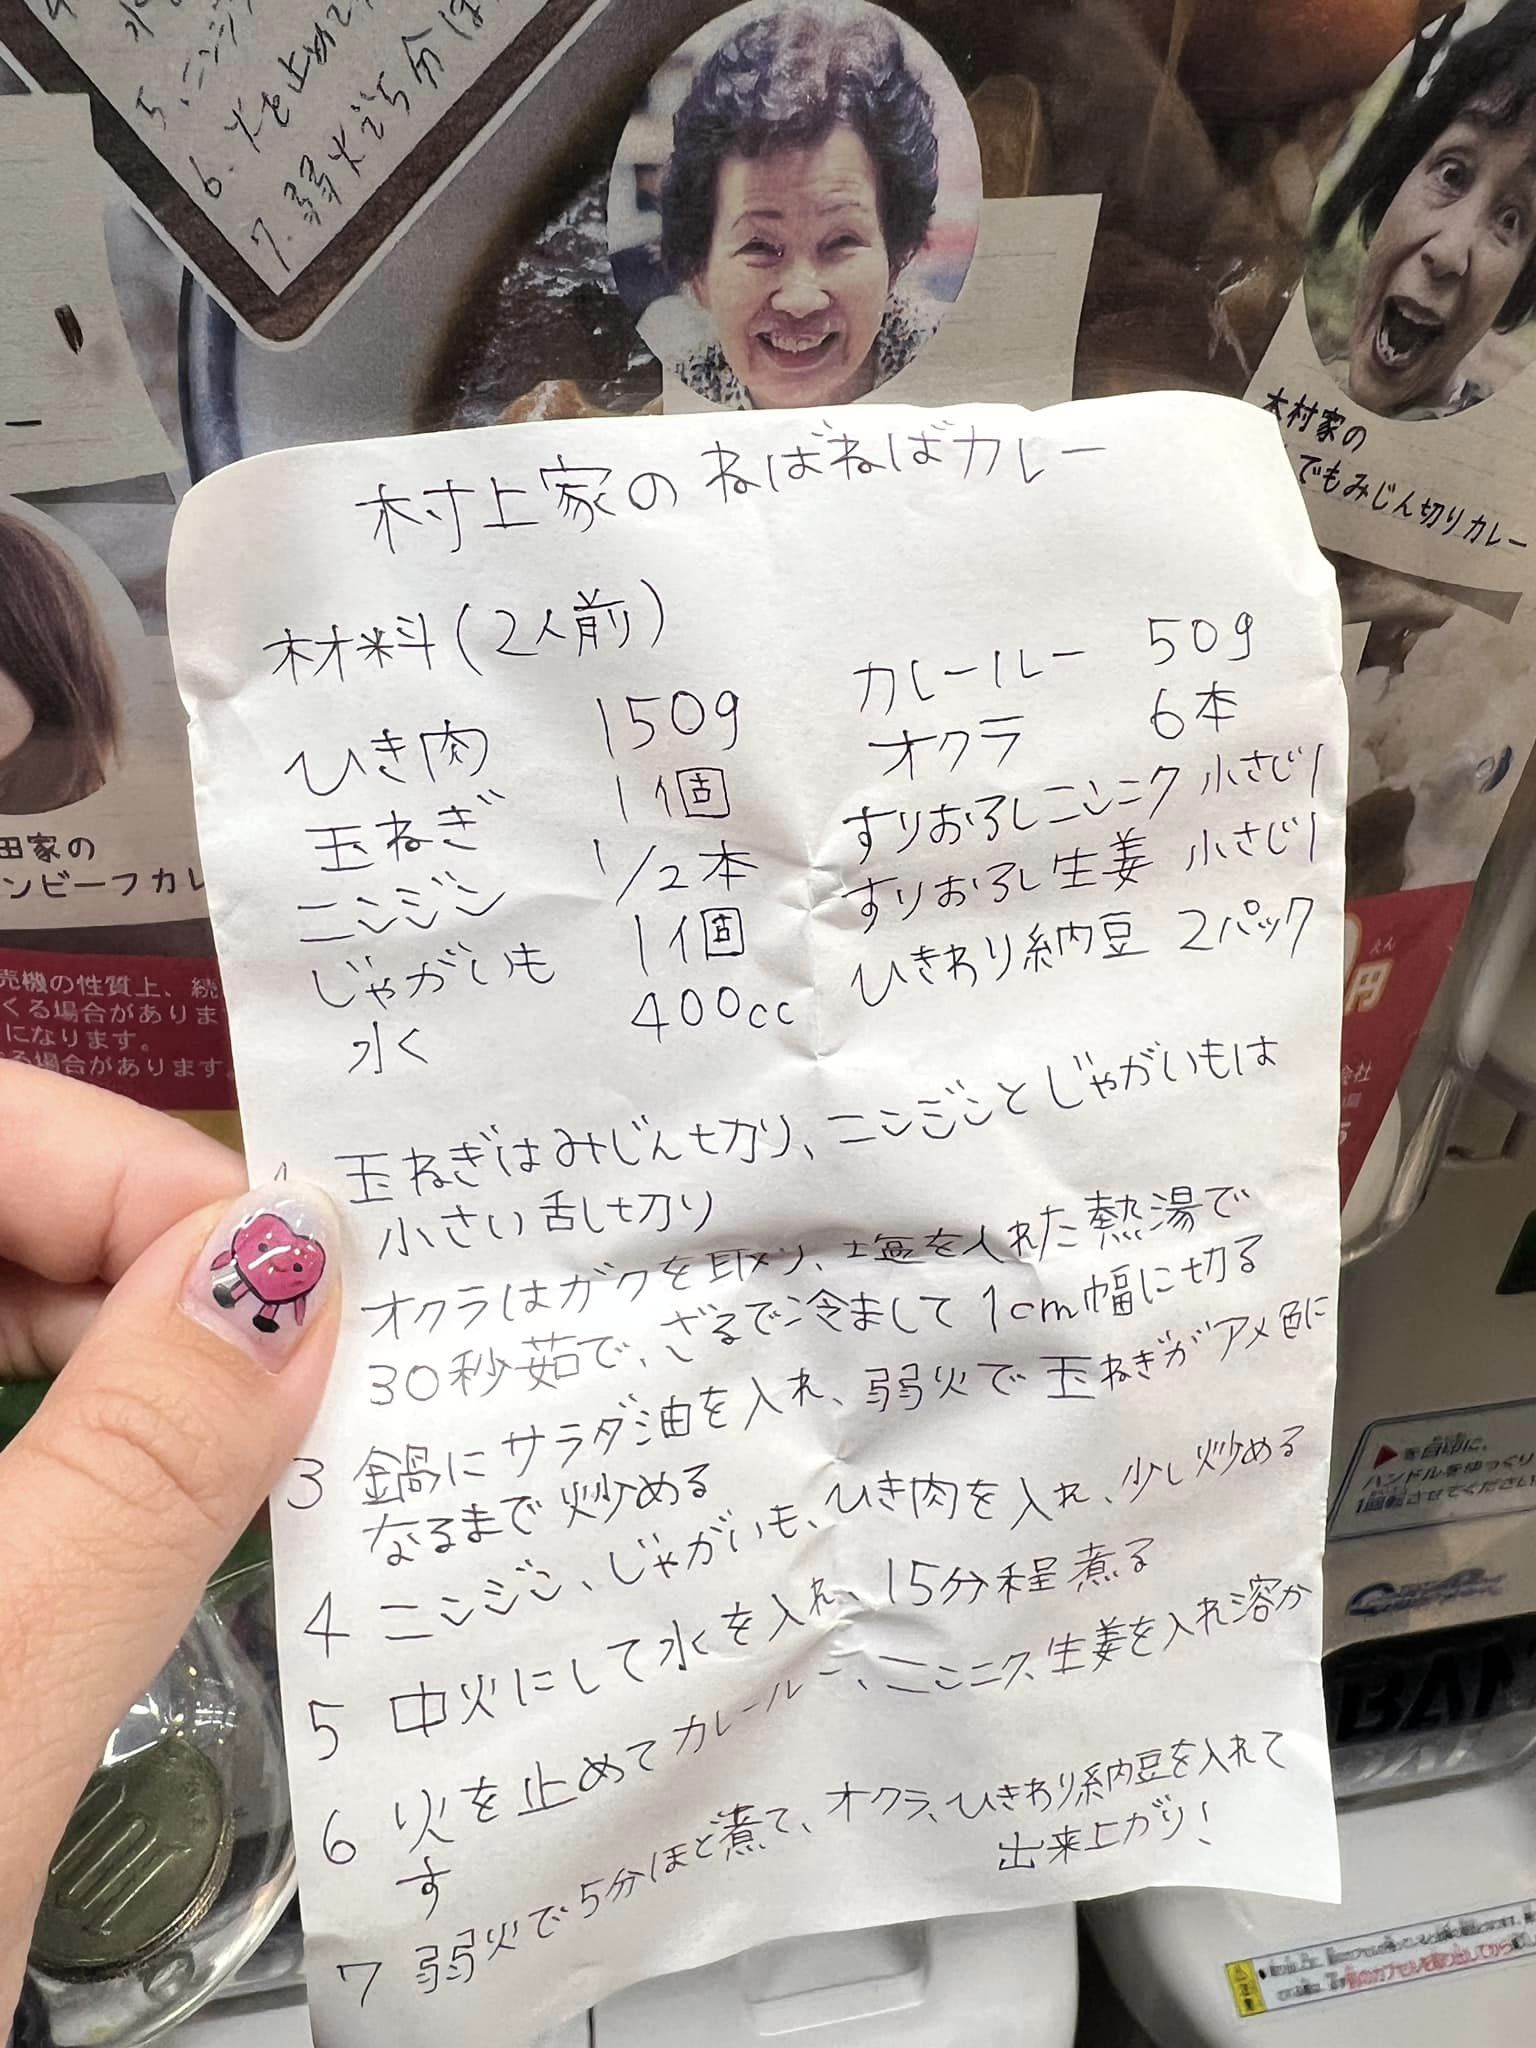 5.ニンジ
6.火を止めて
7.弱火で5分ほ
木村家の
でもみじん切りカレー
田家の
ンビーフカレ
売機の性質上、続
くる場合がありま
になります。
る場合があります。
えん
円
会社
村上家のねばねばカレー
材料(2人前)
ひき肉 150g
玉ねぎ 1個
ニンジン 1/2本
じゃがいも 1個
水く 400cc
カレールー 50g
オクラ 6本
すりおろしニンニク 小さじ1
すりおろし生姜 小さじ1
ひきわり納豆 2パック
1 玉ねぎはみじん切り、ニンジンとじゃがいもは
小さい乱切り
オクラはガクを取り、塩を入れた熱湯で
30秒茹で、ざるで冷まして1cm幅に切る
3 鍋にサラダ油を入れ、弱火で玉ねぎがアメ色に
なるまで炒める
4 ニンジン、じゃがいも、ひき肉を入れ、少し炒める
5 中火にして水を入れ、15分程煮る
6 火を止めてカレールー、ニンニク、生姜を入れ溶か
す
7 弱火で5分ほど煮て、オクラ、ひきわり納豆を入れて
出来上がり!
を目印に、
ハンドルをゆっくり
1回転させてください
BAN